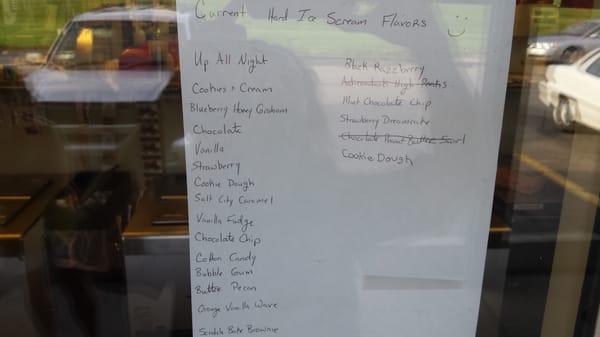 Current Hard Ice Scream Flavors
Up All Night
Cookies + Cream
Blueberry Honey Graham
Chocolate
Vanilla
Strawberry
Cookie Dough
Salt City Caramel
Vanilla Fudge
Chocolate Chip
Cotton Candy
Bubble Gum
Butter Pecan
Orange Vanilla Wave
Scratch Bake Brownie
Black Razzberry
Adirondack High Peaks
Mint Chocolate Chip
Strawberry Dreamcake
Chocolate Peanut Butter Swirl
Cookie Dough